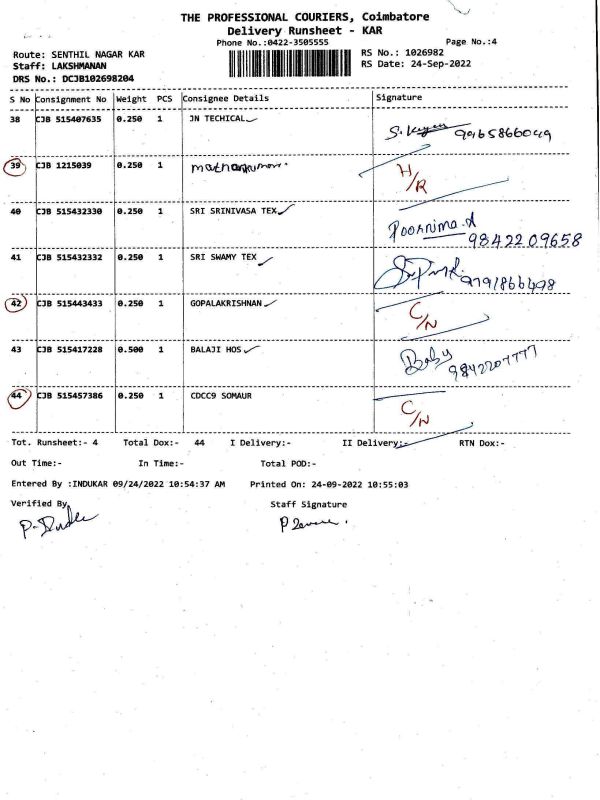 THE PROFESSIONAL COURIERS, Coimbatore
Delivery Runsheet - KAR
Phone No.:0422-3505555
Page No.:4
Route: SENTHIL NAGAR KAR
RS No.: 1026982
Staff: LAKSHMANAN
RS Date: 24-Sep-2022
DRS No.: DCJB102698204
S No Consignment No Weight PCS Consignee Details Signature
38 CJB 515407635 0.250 1 JN TECHICAL 9965866049
39 CJB 1215039 0.250 1 H/R
40 CJB 515432330 0.250 1 SRI SRINIVASA TEX Poornima.A 9842209658
41 CJB 515432332 0.250 1 SRI SWAMY TEX 9791866498
42 CJB 515443433 0.250 1 GOPALAKRISHNAN C/N
43 CJB 515417228 0.500 1 BALAJI HOS Baby 9842207777
44 CJB 515457386 0.250 1 CDCC9 SOMAUR C/N
Tot. Runsheet:- 4 Total Dox:- 44 I Delivery:- II Delivery:- RTN Dox:-
Out Time:- In Time:- Total POD:-
Entered By :INDUKAR 09/24/2022 10:54:37 AM Printed On: 24-09-2022 10:55:03
Verified By Staff Signature